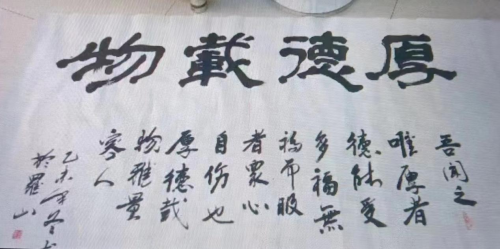 厚德載物
吾闻之
唯厚者
德能受
多福無
福而服
者眾必
自伤也
厚德载
物雅量
容人
乙未年冬
於羅山